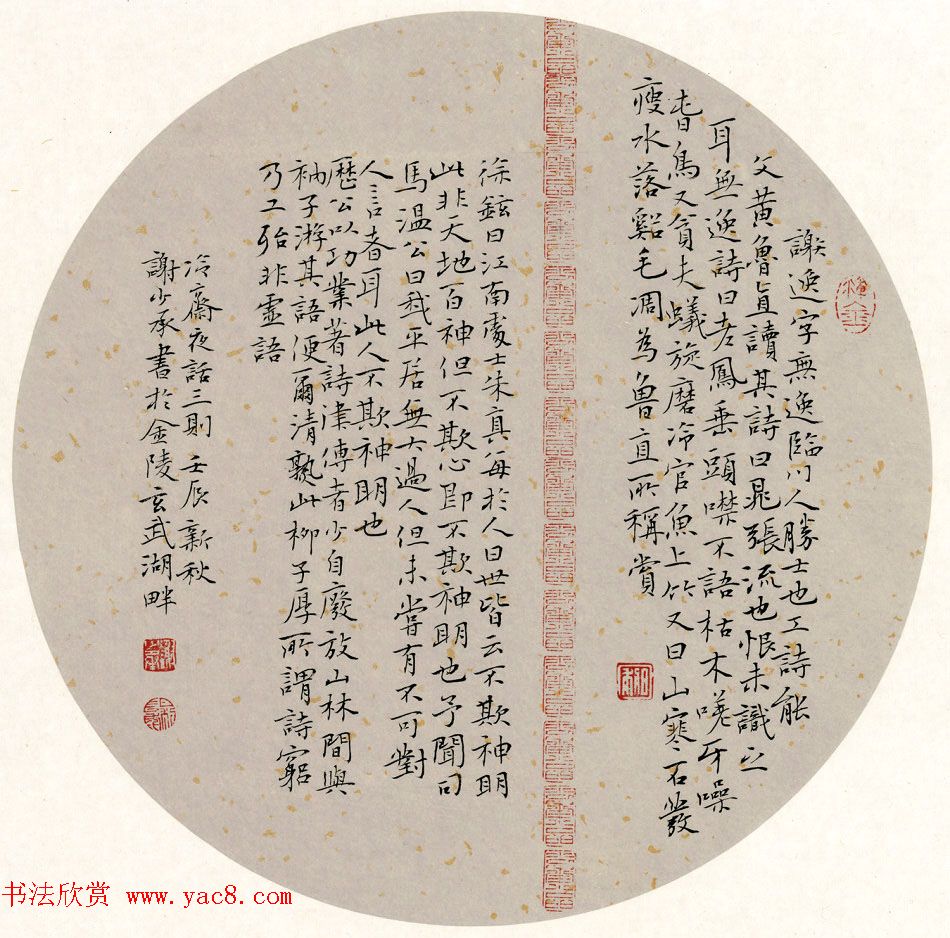 謝逸字無逸臨川人勝士也工詩能
父黃魯直讀其詩曰晁張流也恨未識之
耳無逸詩曰老鳳垂頭噤不語枯木槎牙噪
春鳥又貪夫蟻旋磨冷官魚上竹又曰山寒石發
瘦水落谿毛凋為魯直所稱賞
徐鉉曰江南處士朱真每於人曰世皆云不欺神明
此非天地百神但不欺心即不欺神明也予聞司
馬溫公曰我平居無大過人但未嘗有不可對
人言者耳此人不欺神明也
歷公以功業著詩律傳者少自廢放山林間與
衲子游其語便爾清熟此柳子厚所謂詩窮
乃工殆非虛語
冷齋夜話三則 壬辰新秋
謝少承書於金陵玄武湖畔
书法欣赏 www.yac8.com